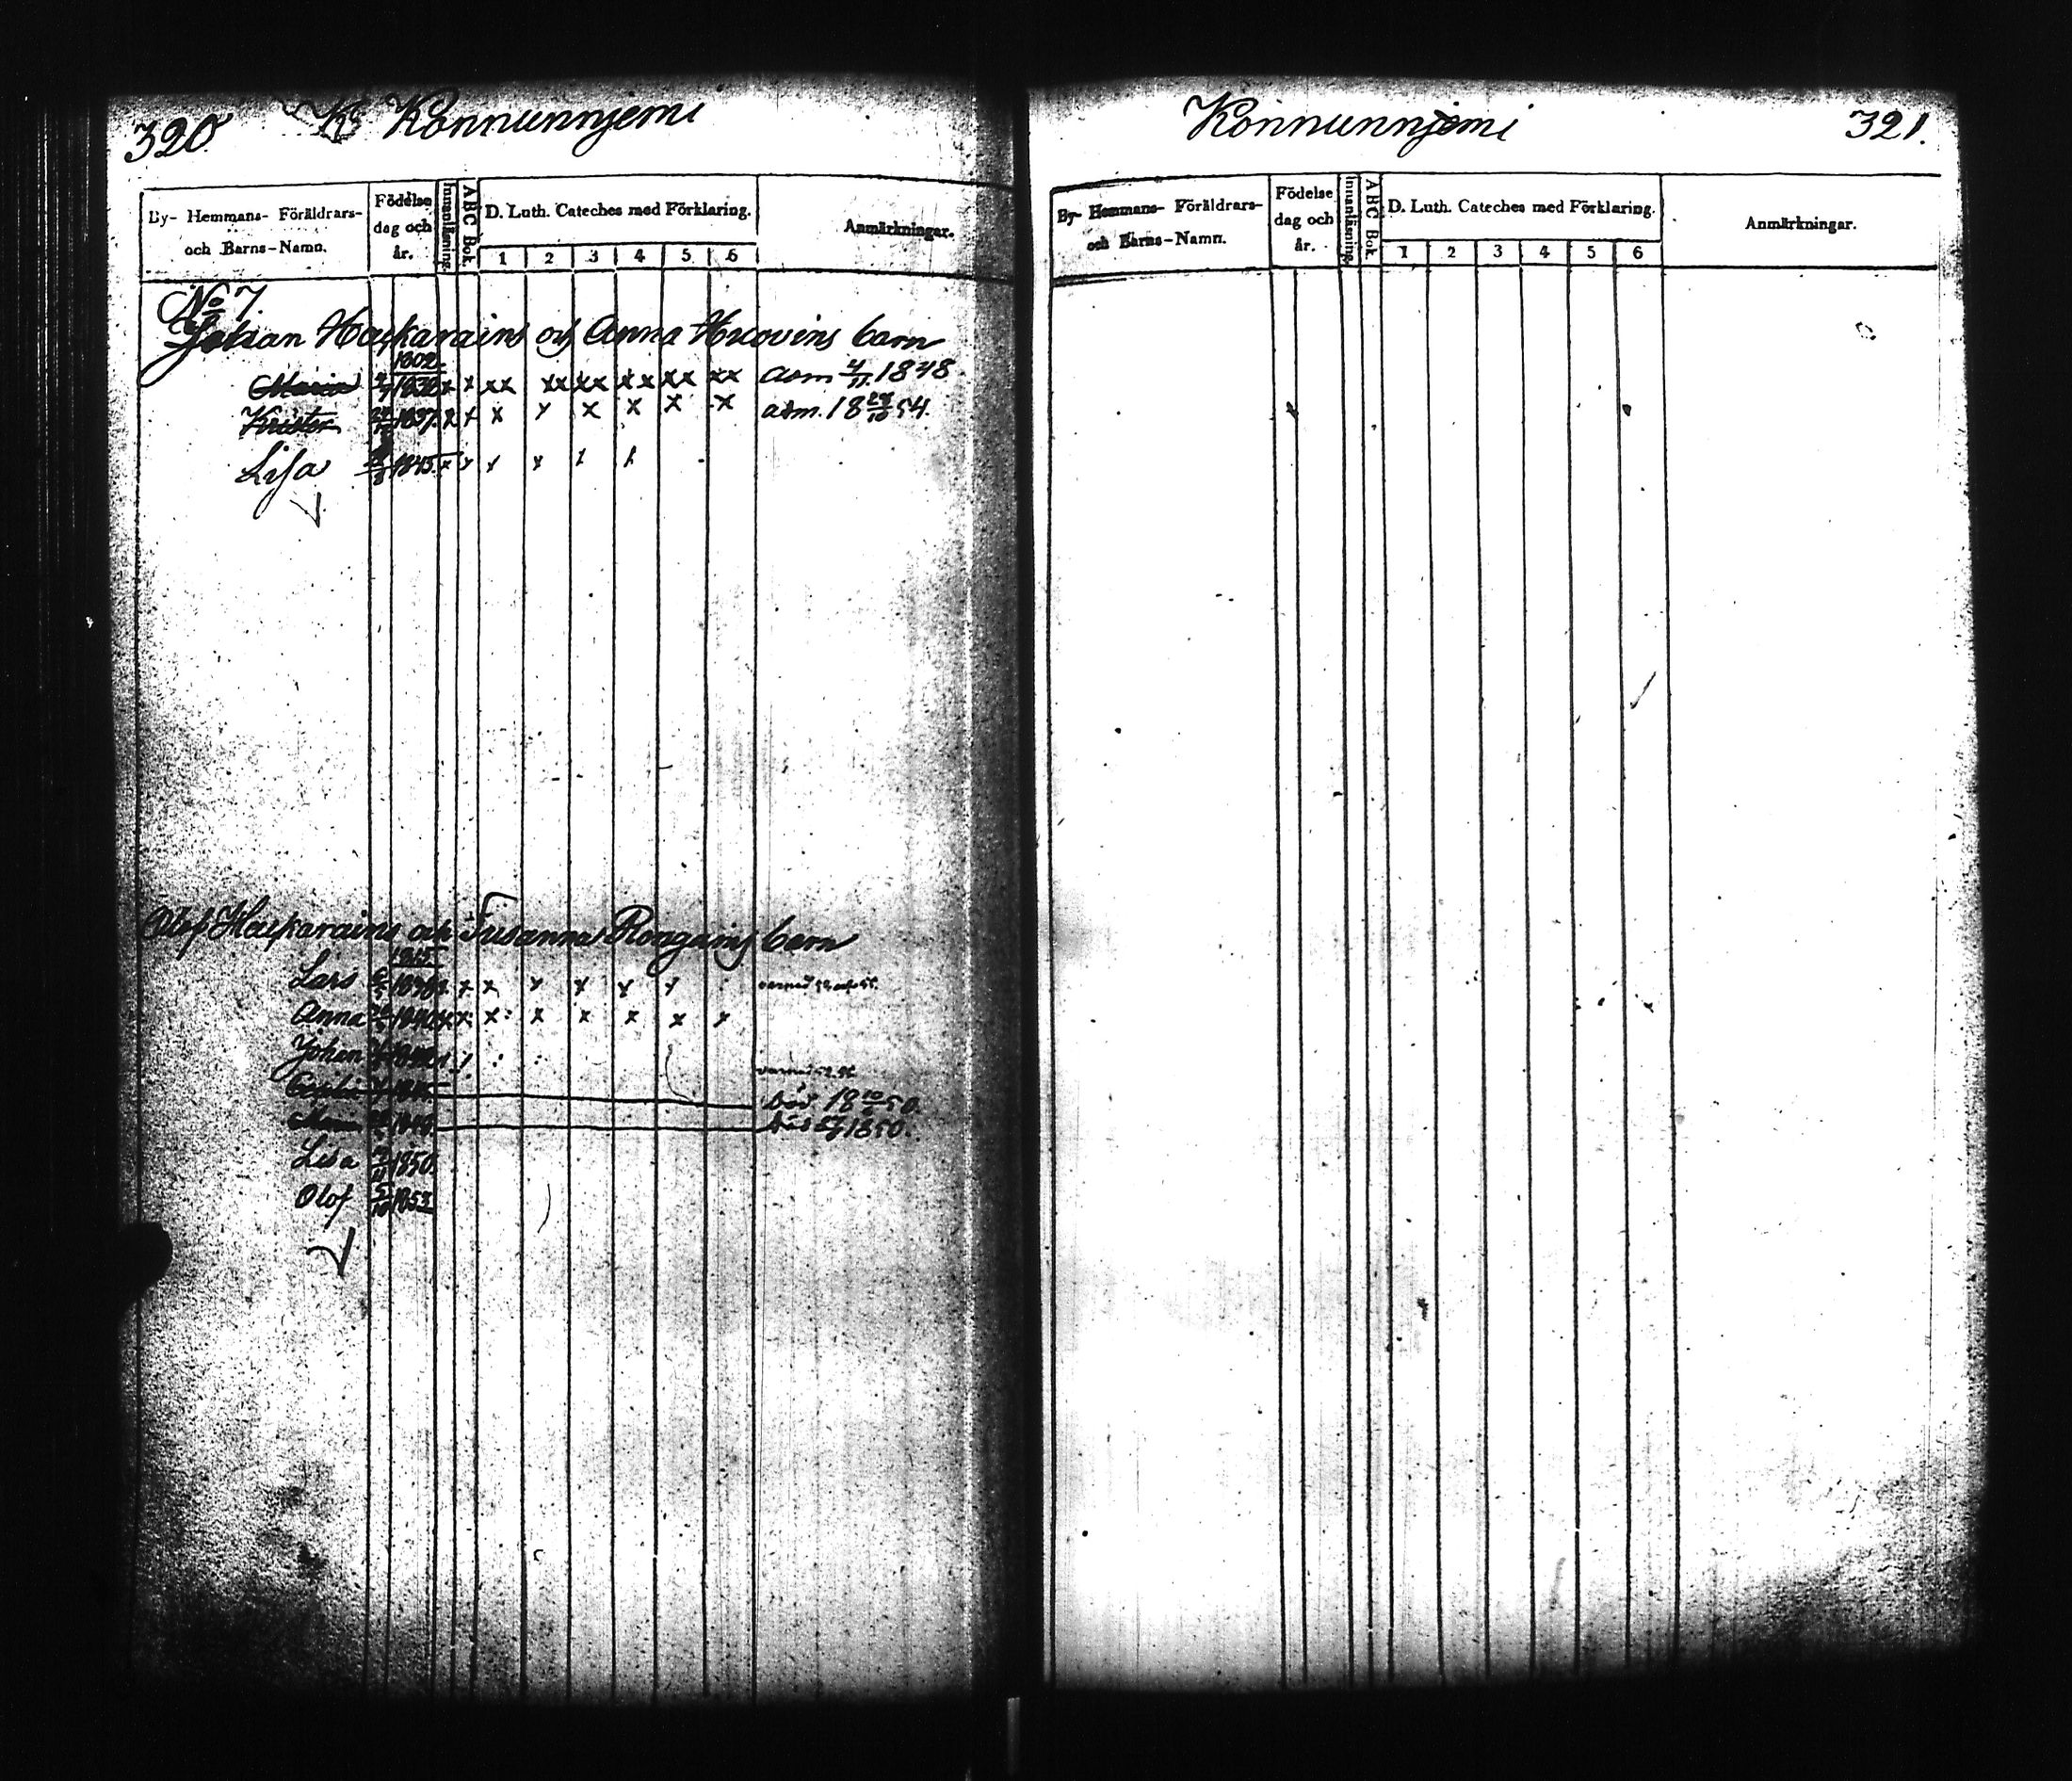 320
Konnunnjemi
By- Hemmans- Föräldrars-
och Barns-Namn.
Födelse
dag och
år.
Innanläsning.
ABC Bok.
D. Luth. Cateches med Förklaring.
1 2 3 4 5 6
Anmärkningar.
No 7.
Johan Haukarains och Anna Huovins barn
1802
Maria 1832 x x xx xx xx xx xx xx adm 4/11 1848.
Krister 1837. x x x x x x x x adm. 18 28/10 54.
Lisa 1845. x x x x
Olof Haukarains och Susanna Rongains barn
1815
Lars 1838 x x x x x x x
Anna 1840 x x x x x x x x
Johan
död 18 10/6 50.
död 1850.
Lisa 1850.
Olof 5/10 1853
Konnunnjemi
321.
By- Hemmans- Föräldrars-
och Barns-Namn.
Födelse
dag och
år.
Innanläsning.
ABC Bok.
D. Luth. Cateches med Förklaring.
1 2 3 4 5 6
Anmärkningar.